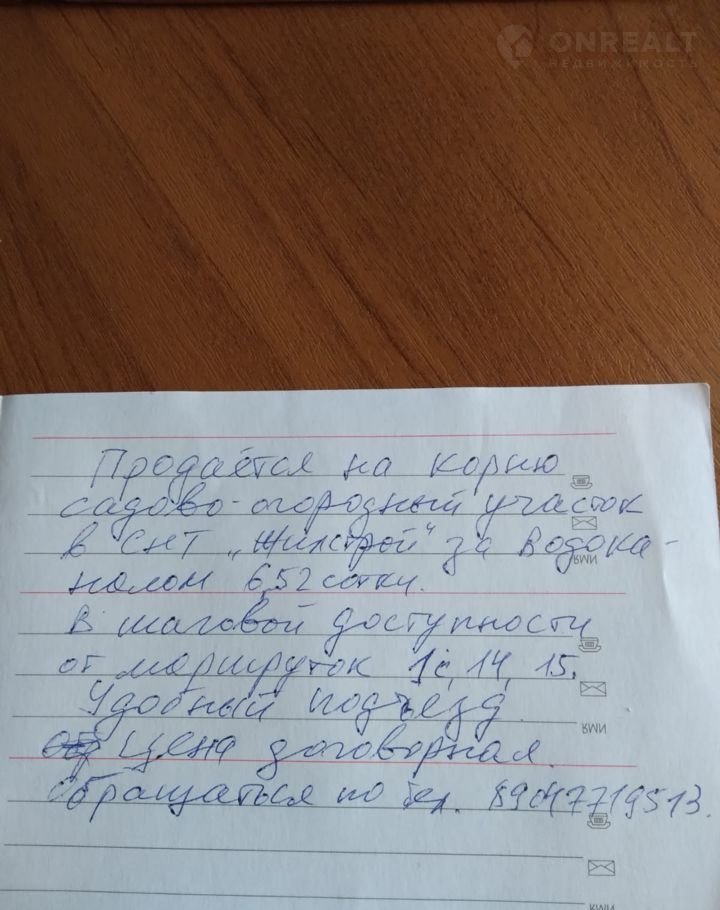 ONREALT
НЕДВИЖИМОСТЬ
Продаётся на корню
садово-огородный участок
в СНТ „Жилстрой" за Водока-
налом 6,52 сотки.
В шаговой доступности
от маршруток 1с, 14, 15.
Удобный подъезд.
Цена договорная.
Обращаться по тел. 89047719513.
ИМЯ
ИМЯ
ИМЯ